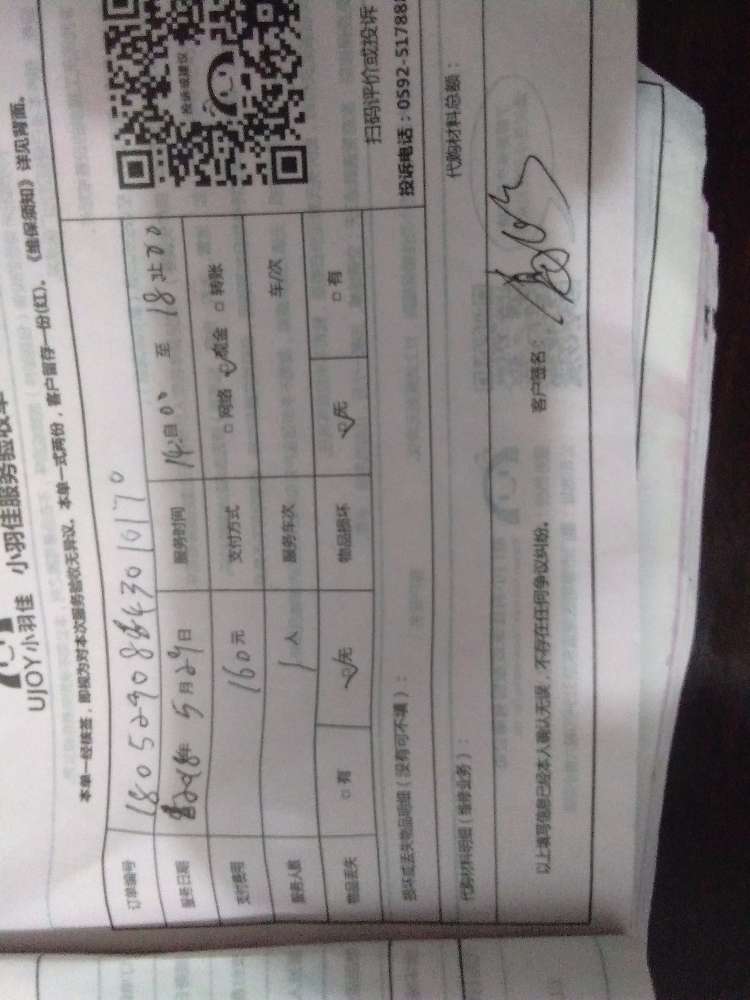 UJOY小羽佳 小羽佳服务验收单
本单一经核签，即视为对本次服务验收无异议。本单一式两份，客户留存一份(红)。《维保须知》详见背面。
订单编号
服务日期 2018年 5月29日 服务时间 14:00 至 18:00
支付费用 160元 支付方式 □网络 ☑现金 □转账
服务人数 1人 服务车次 车/次
物品丢失 □有 ☑无 物品损坏 ☑无 □有
投诉或建议
扫码评价或投诉
投诉电话：0592-51788
损坏或丢失物品明细（没有可不填）：
代购材料明细（维修业务）： 代购材料总额：
以上填写信息已经本人确认无误，不存在任何争议纠纷。 客户签名：